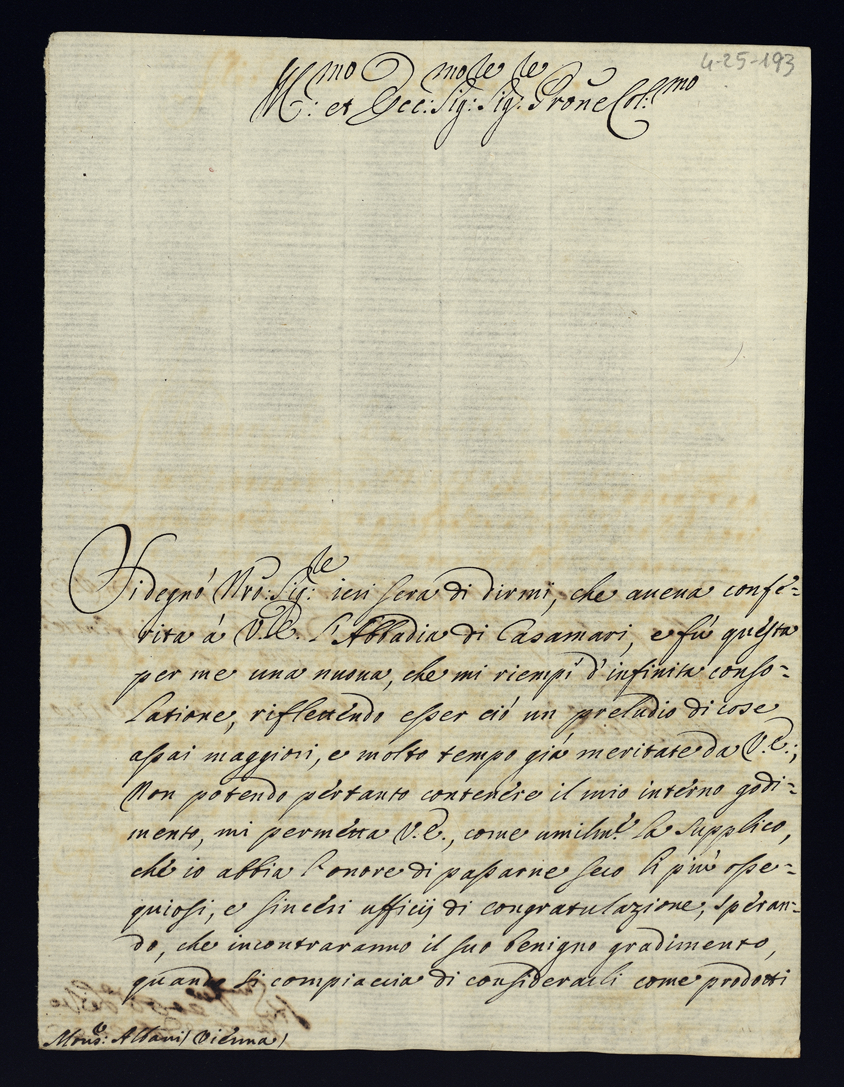 4-25-193
Ill:mo et Ecc:mo Sig:re Sig:re Prone Col:mo
Si degnò Nro: Sig:re ieri sera di dirmi, che aueua confe=
rita à V.E. l'Abbadia di Casamari, e fù questa
per me una nuoua, che mi riempì d'infinita conso=
latione, riflettendo esser ciò un preludio di cose
assai maggiori, e molto tempo già meritate da V.E.;
Non potendo pertanto contenere il mio interno godi=
mento, mi permetta V.E., come umilm.te la supplico,
che io abbia l'onore di passarne seco li più osse=
quiosi, e sinceri ufficij di congratulazione, speran=
do, che incontraranno il suo benigno gradimento,
quando si compiaccia di considerarli come prodotti
Mons: Albani (Vienna)